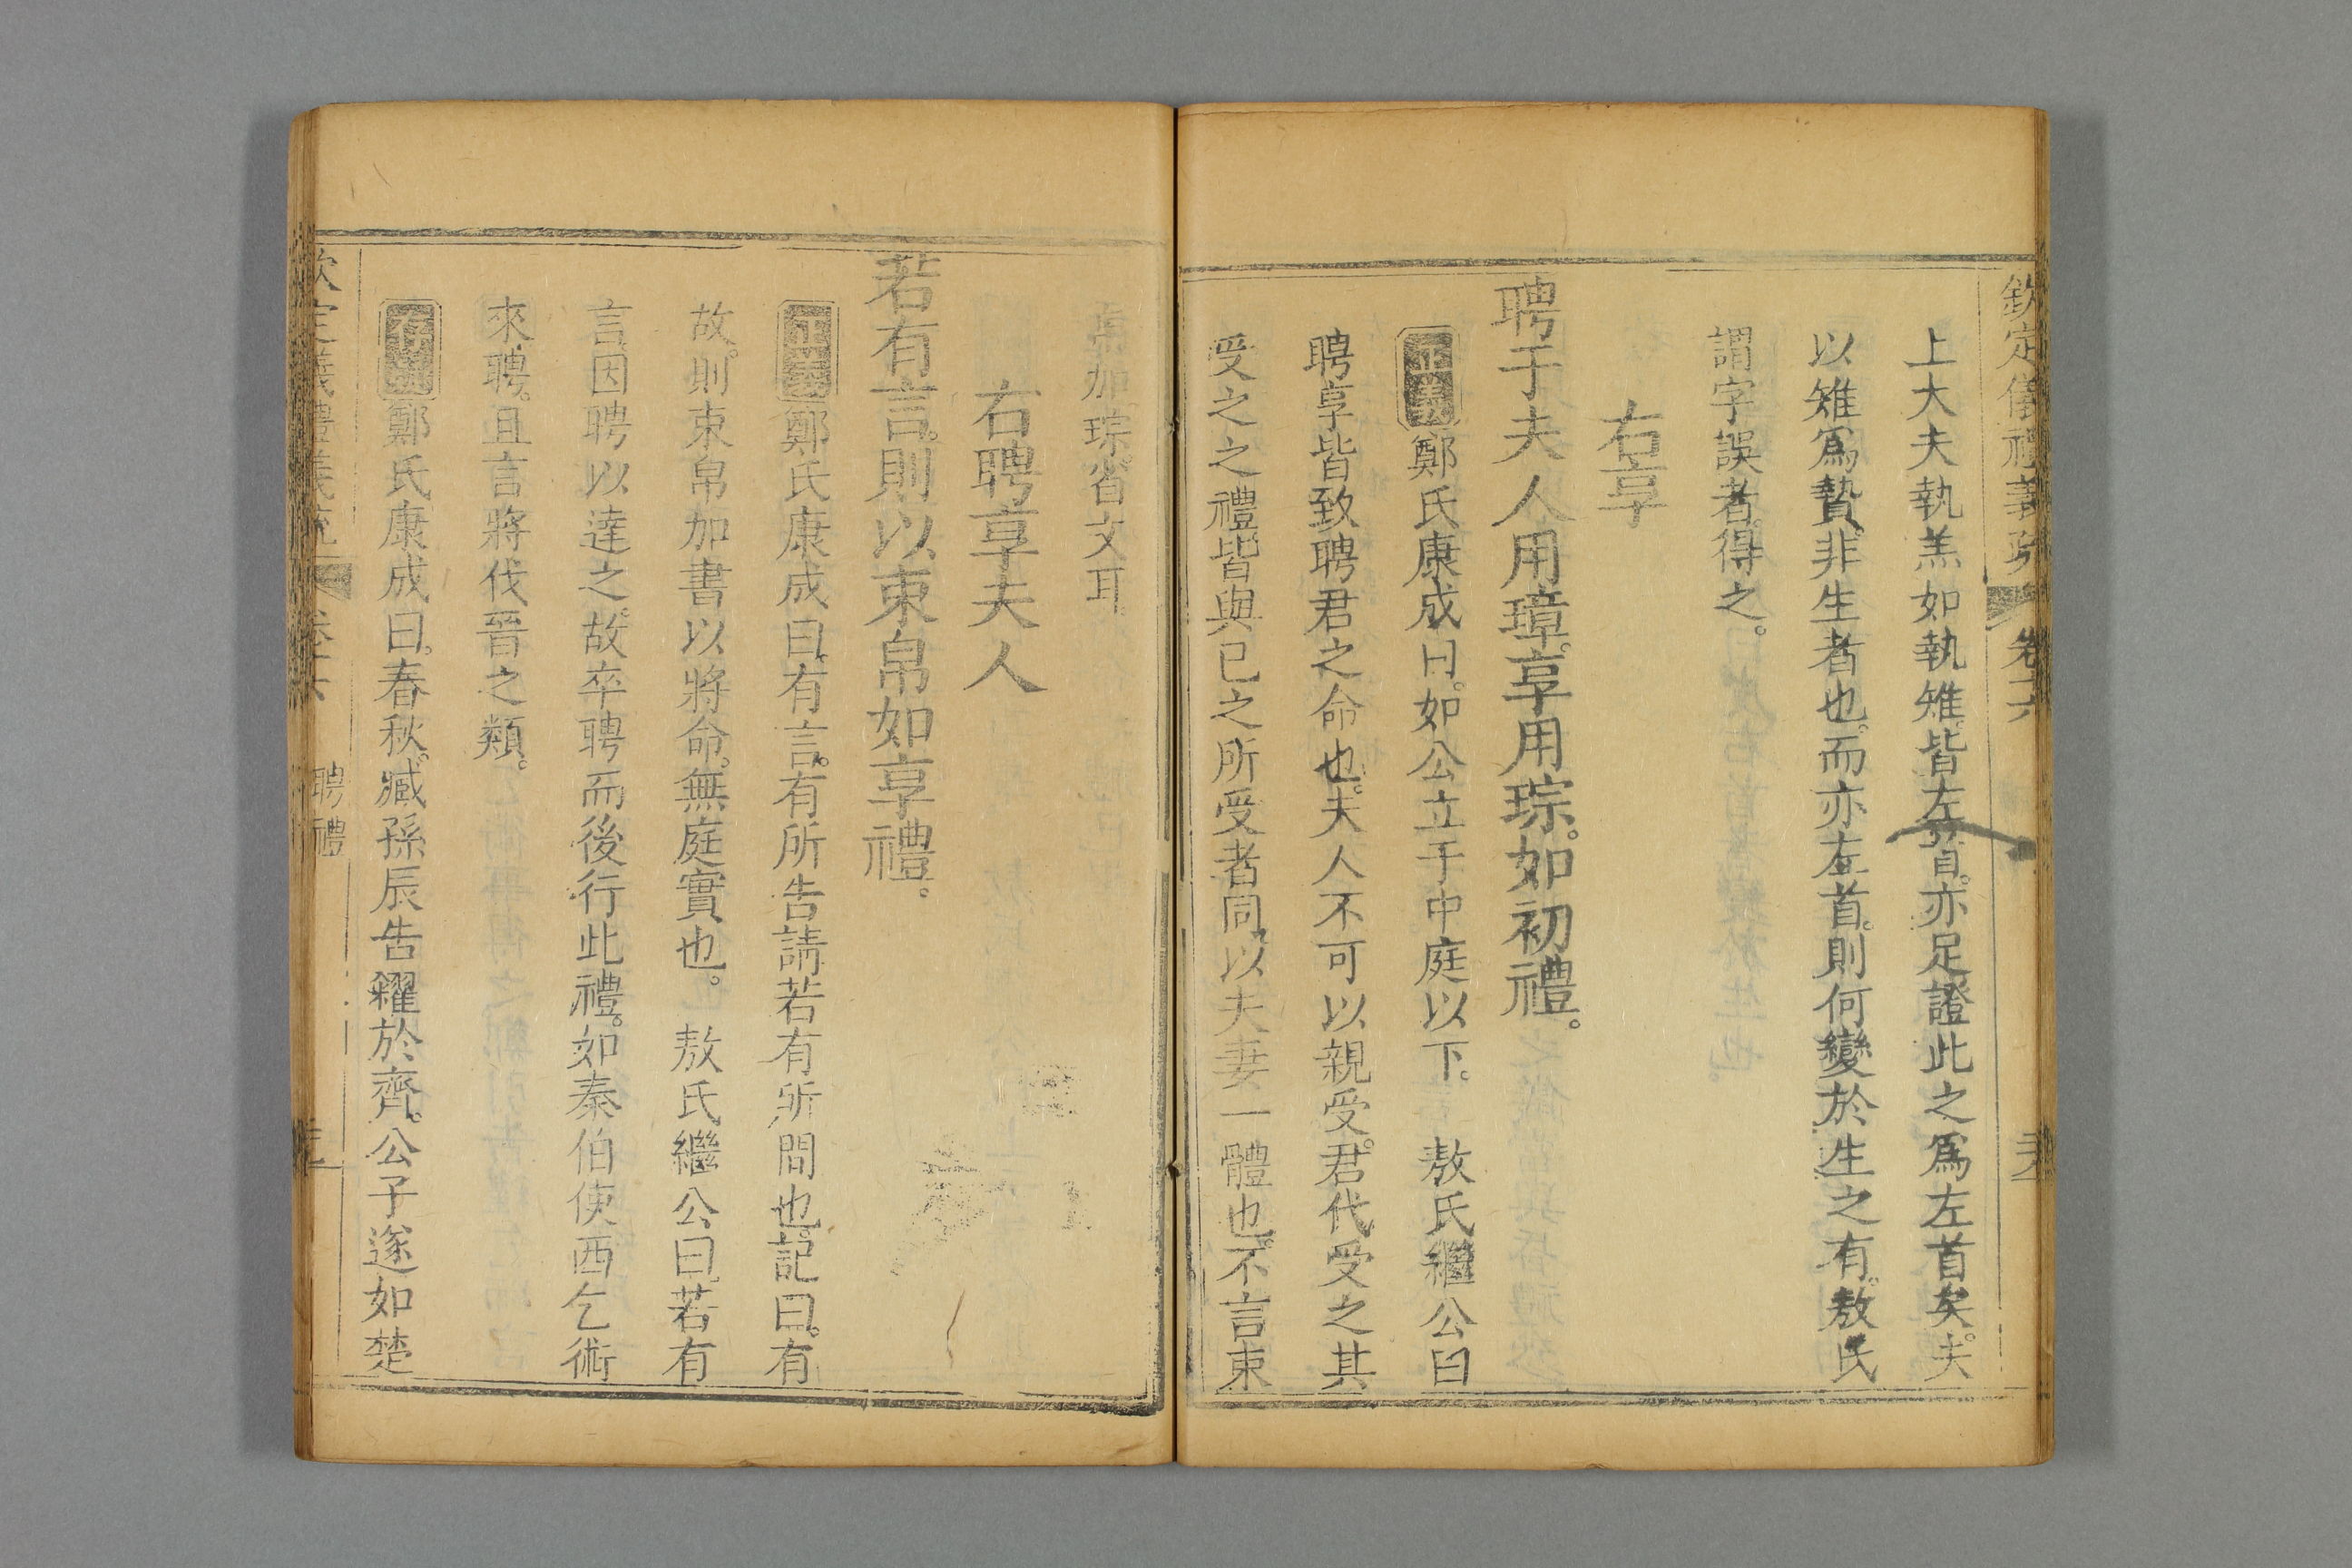 欽定儀禮義疏 卷十六
上大夫執羔如執雉皆左首亦足證此之爲左首矣夫
以雉爲贄非生者也而亦左首則何變於生之有敖氏
謂字誤者得之
右享
聘于夫人用璋享用琮如初禮
正義鄭氏康成曰如公立于中庭以下 敖氏繼公曰
聘享皆致聘君之命也夫人不可以親受君代受之其
受之之禮皆與已之所受者同以夫妻一體也不言束
帛加琮省文耳
右聘享夫人
若有言則以束帛如享禮
正義鄭氏康成曰有言有所告請若有所問也記曰有
故則束帛加書以將命無庭實也 敖氏繼公曰若有
言因聘以達之故卒聘而後行此禮如秦伯使西乞術
來聘且言將伐晉之類
存疑鄭氏康成曰春秋臧孫辰告糴於齊公子遂如楚
欽定儀禮義疏 卷十六 聘禮